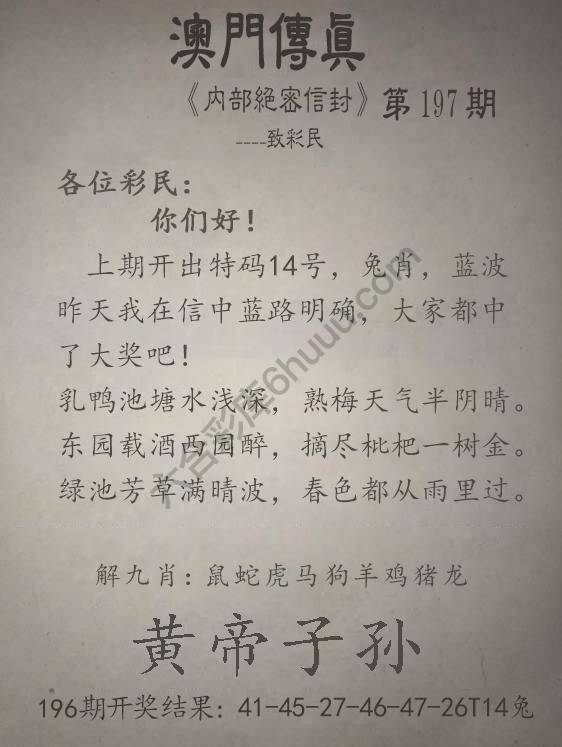 澳門傳真
《内部絕密信封》第197期
----致彩民
各位彩民：
你们好！
上期开出特码14号，兔肖，蓝波
昨天我在信中蓝路明确，大家都中
了大奖吧！
乳鸭池塘水浅深，熟梅天气半阴晴。
东园载酒西园醉，摘尽枇杷一树金。
绿池芳草满晴波，春色都从雨里过。
六合彩库6huuu.com
解九肖：鼠蛇虎马狗羊鸡猪龙
黄帝子孙
196期开奖结果：41-45-27-46-47-26T14兔